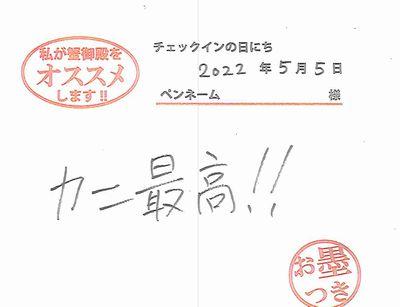 私が蟹御殿を
オススメ
します!!
チェックインの日にち
2022年5月5日
ペンネーム 様
カニ最高!!
お墨
つき